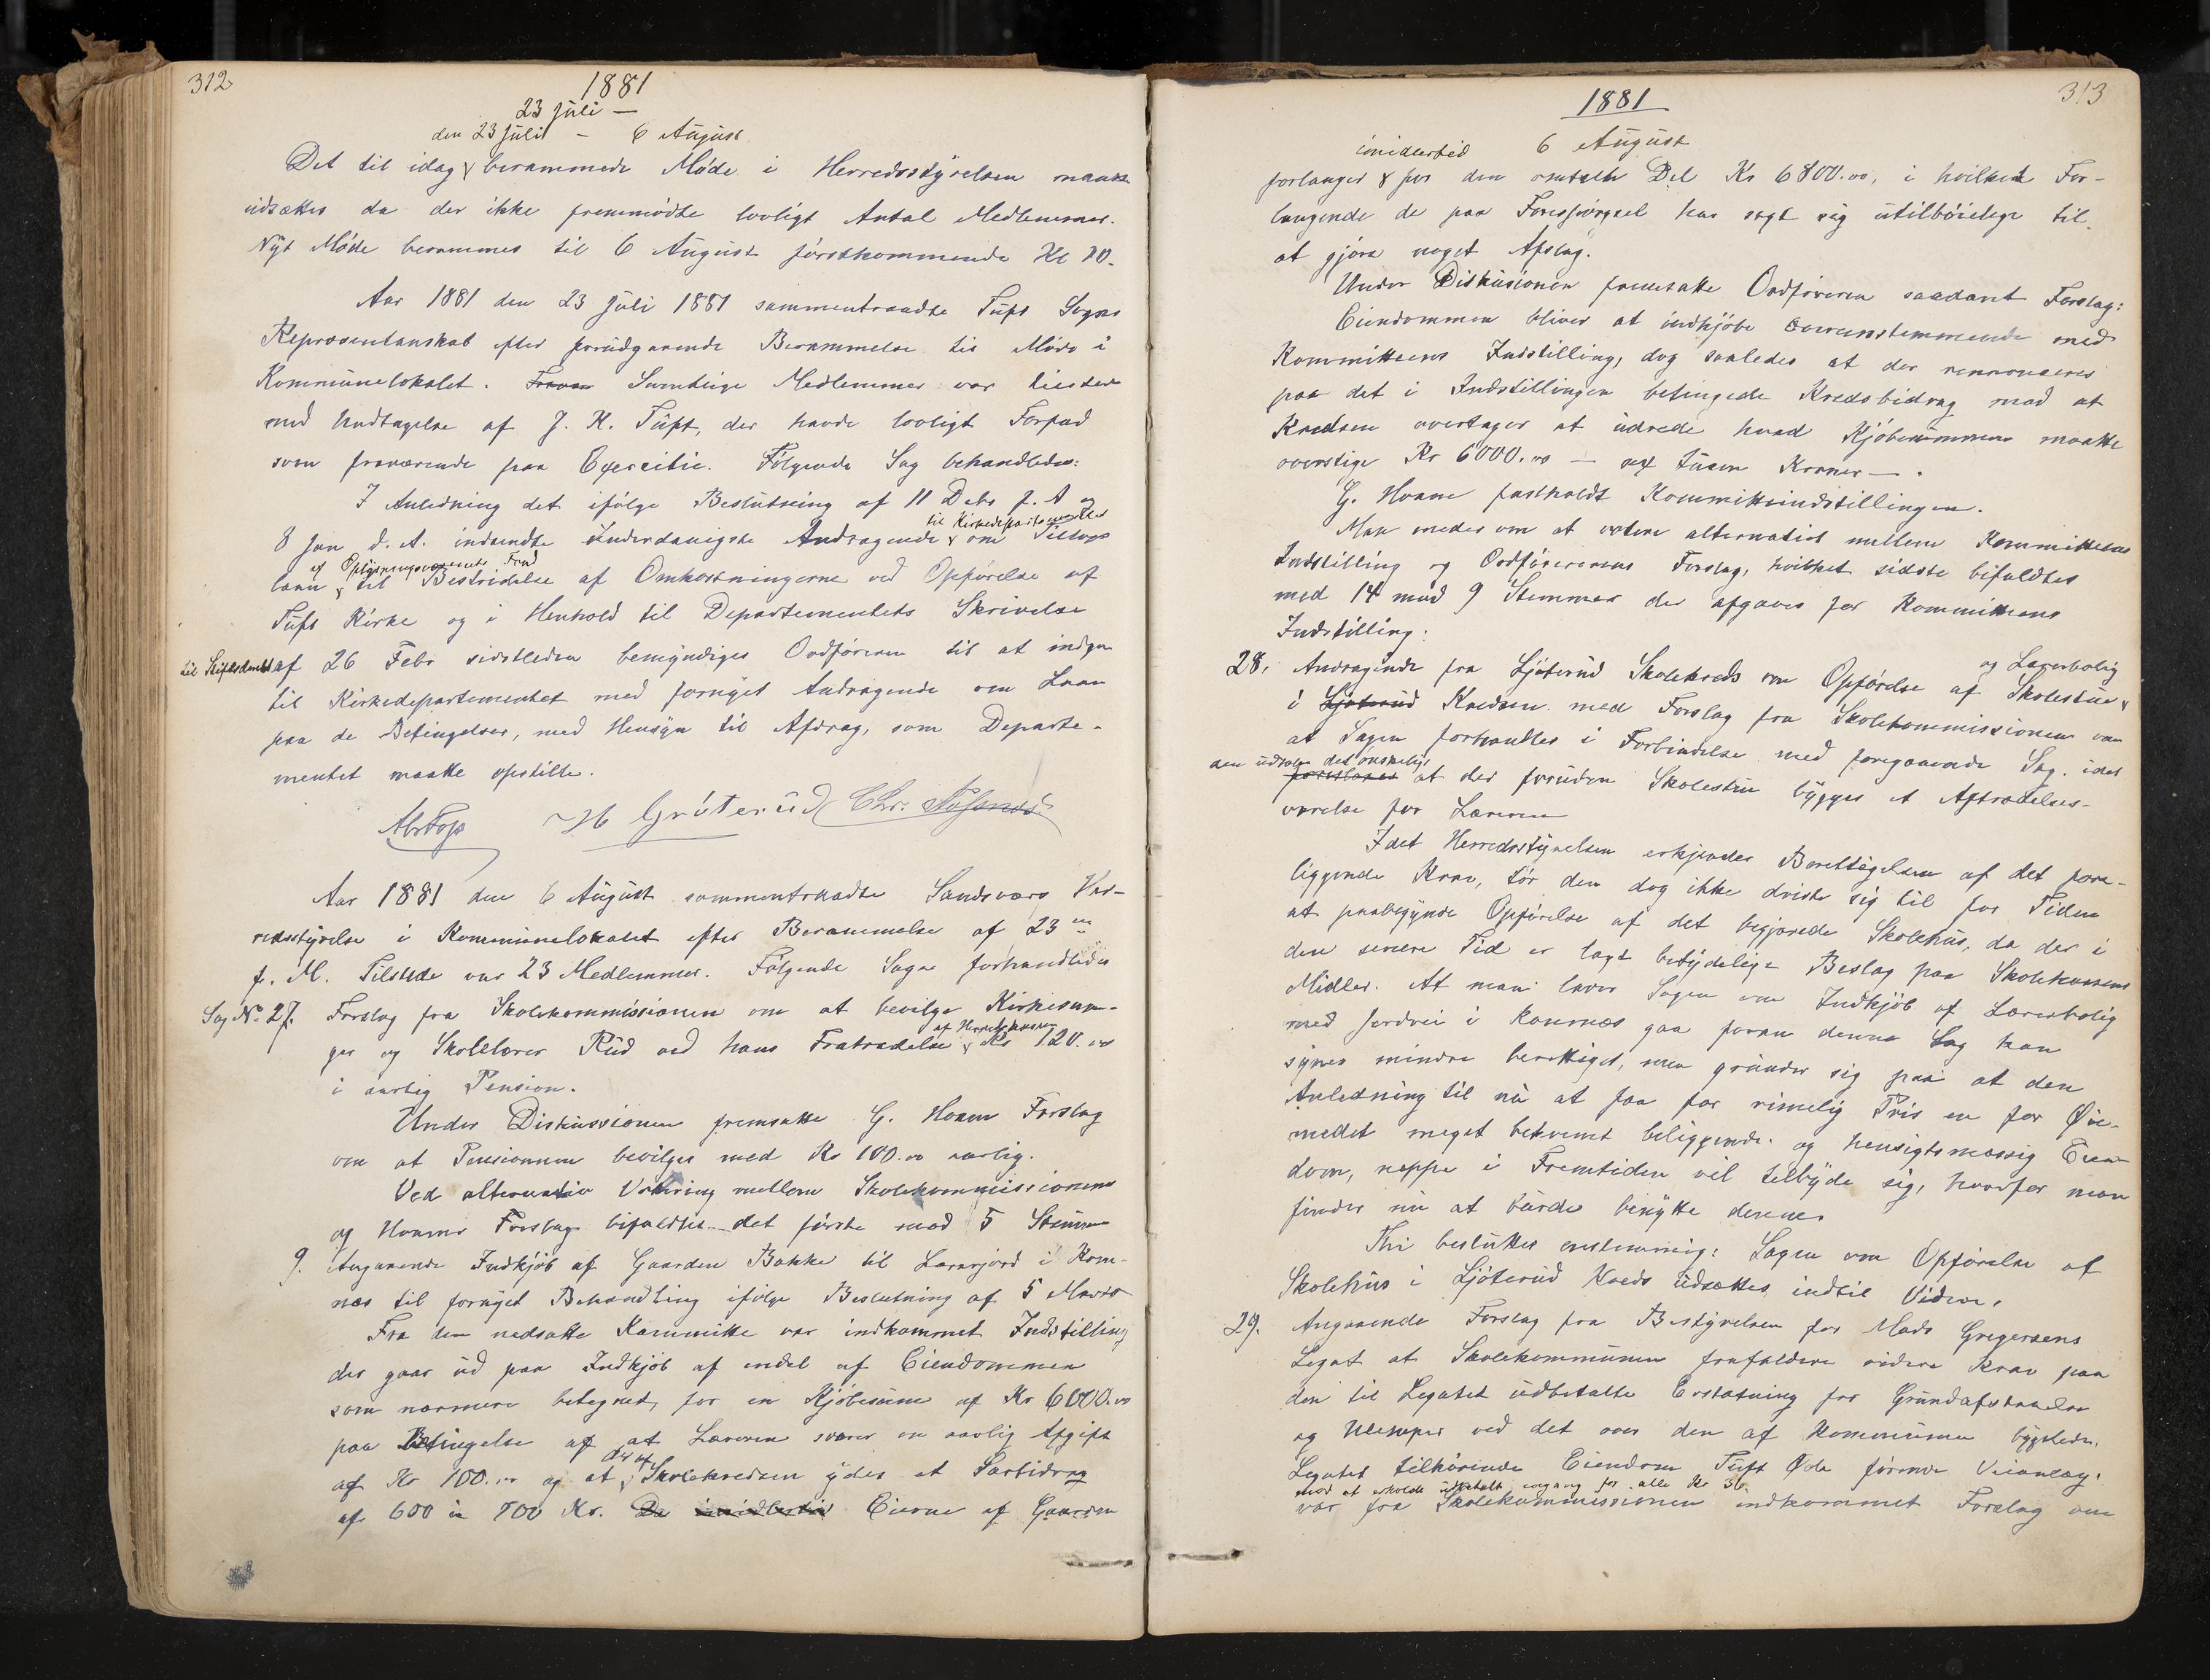 312
1881
23 Juli —
den 23 Juli — 6 August
Det til idag berammede Møde i Herredsstyrelsen maatte
udsættes da der ikke fremmødte lovligt Antal Medlemmer.
Nyt Møde berammes til 6 August førstkommende Kl 10.
Aar 1881 den 23 Juli 1881 sammentraadte Tufts Sogns
Repræsentanskab efter forudgaaende Berammelse til Møde i
Kommunelokalet. Samtlige Medlemmer var tilstede
med Undtagelse af J. K. Tuft, der havde lovligt Forfald
som fraværende paa Exercitie. Følgende Sag behandledes:
I Anledning det ifølge Beslutning af 11 Debr f. A og
til Kirkedepartementet
8 Jan d. A. indsendte underdanigste Andragende om
af Oplysningsvæsenets Fond
laan til Bestridelse af Omkostningerne ved Opførelse af
Tufts Kirke og i Henhold til Departementets Skrivelse
til Stiftsdirekt af 26 Febr sidstleden bemyndiges Ordføreren til at indgaa
til Kirkedepartementet med fornyet Andragende om Laan
paa de Betingelser, med Hensyn til Afdrag, som Departe-
mentet maatte opstille.
H Grøterud Chr.
Aar 1881 den 6 August sammentraadte Sandsværs Her-
redsstyrelse i Kommunelokalet efter Berammelse af 23de
f. M. Tilstede var 23 Medlemmer. Følgende Sager forhandledes
Sag No 27. Forslag fra Skolekommissionen om at bevilge Kirkesan-
af Herredskassen
ger og Skolelærer Rud ved hans Fratrædelse Kr 120.00
i aarlig Pension.
Under Diskussionen fremsatte G. Hvam Forslag
om at Pensionen bevilges med Kr 100.00 aarlig.
Ved alternativ Votering mellem Skolekommissionens
og Hvams Forslag bifaldtes det første mod 5 Stemmer
9. Angaaende Indkjøb af Gaarden Bakke til Lærerjord i Kom-
næs til fornyet Behandling ifølge Beslutning af 5 Marts
Fra den nedsatte Kommitte var indkommet Indstilling
der gaar ud paa Indkjøb af endel af Eiendommen
som nærmere betegnet, for en Kjøbesum af Kr 6000.00
paa Betingelse af at Læreren svarer en aarlig Afgift
af Kr 100.00 og at Skolekredsen yder et Særbidrag
af 600 à 700 Kr. Da imidlertid Eierne af Gaarden
313
1881
imidlertid 6 August
forlanger for den omtalte Del Kr 6800.00, i hvilket For-
langende de paa Forespørgsel har sagt sig utilbøielige til
at gjøre noget Afslag.
Under Diskusionen fremsatte Ordføreren saadant Forslag:
Eiendommen bliver at indkjøbe overensstemmende med
Kommitteens Indstilling, dog saaledes at der renonceres
paa det i Indstillingen betingede Kredsbidrag mod at
Kredsen overtager at udrede hvad Kjøbesummen maatte
overstige Kr 6000.00 — sex tusen Kroner — .
G. Hvam fastholdt Kommitteindstillingen.
Man enedes om at votere alternativt mellem Kommitteens
Indstilling og Ordførerens Forslag, hvilket sidste bifaldtes
med 14 mod 9 Stemmer der afgaves for Kommitteens
Indstilling.
og Lærerbolig
28. Andragende fra Ljøterud Skolekreds om Opførelse af Skolestue
i Ljøterud Kredsen med Forslag fra Skolekommissionen om
at Sagen forhandles i Forbindelse med foregaaende Sag. idet
den udtaler det ønskeligt
foreslaaes at der foruden Skolestue bygges et Aftrædelses-
værelse for Læreren
Idet Herredsstyrelsen erkjender Berettigelsen af det fore-
liggende Krav, tør den dog ikke driste sig til for Tiden
at paabegynde Opførelse af det begjærede Skolehus, da der i
den senere Tid er lagt betydelige Beslag paa Skolekassens
Midler. At man lader Sagen om Indkjøb af Lærerbolig
med Jordvei i Komnæs gaa foran denne Sag kan
synes mindre berettiget, men grunder sig paa at den
Anledning til nu at faa for rimelig Pris en for Øie-
medet meget bekvemt beliggende og hensigtsmæssig Eien-
dom, neppe i Fremtiden vil tilbyde sig, hvorfor man
finder nu at burde benytte denne.
Thi besluttes enstemmig: Sagen om Opførelse af
Skolehus i Ljøterud Kreds udsættes indtil Videre.
29. Angaaende Forslag fra Bestyrelsen for Mads Gregersens
Legat at Skolekommunen frafalder videre Krav paa
den til Legatet udbetalte Erstatning for Grundafstaaelse
og Ulemper ved det over den af Kommunen byggede,
Legatet tilhørende Eiendom Tuft Øde førende Veianlæg.
mod at erholde udbetalt engang for alle Kr 36.
var fra Skolekommissionen indkommet Forslag om